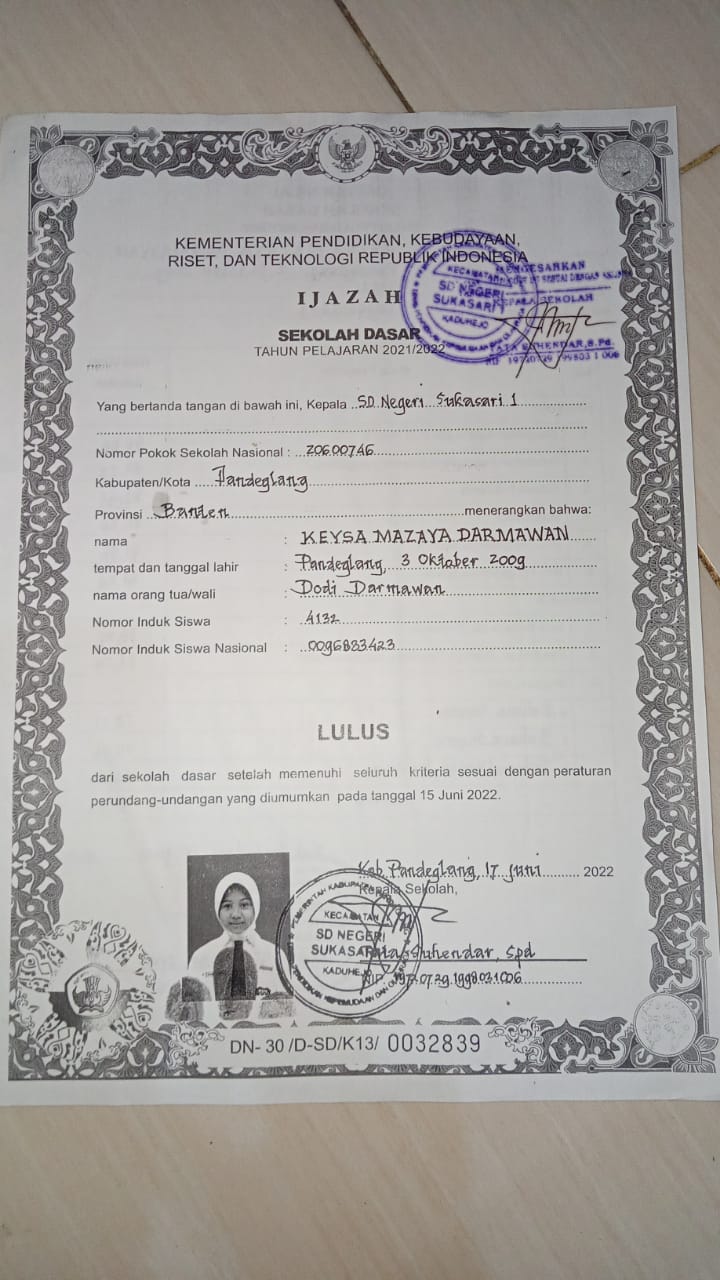 KEMENTERIAN PENDIDIKAN, KEBUDAYAAN,
RISET, DAN TEKNOLOGI REPUBLIK INDONESIA
IJAZAH
SEKOLAH DASAR
TAHUN PELAJARAN 2021/2022
KECAMATAN
SD NEGERI
SUKASARI 1
KADUHEJO
KEPALA SEKOLAH
SUHENDAR, S.Pd.
Yang bertanda tangan di bawah ini, Kepala SD Negeri Sukasari 1
Nomor Pokok Sekolah Nasional : 20600746
Kabupaten/Kota Pandeglang
Provinsi Banten menerangkan bahwa:
nama : KEYSA MAZAYA DARMAWAN
tempat dan tanggal lahir : Pandeglang, 3 Oktober 2009
nama orang tua/wali : Dodi Darmawan
Nomor Induk Siswa : 4132
Nomor Induk Siswa Nasional : 0096883423
LULUS
dari sekolah dasar setelah memenuhi seluruh kriteria sesuai dengan peraturan
perundang-undangan yang diumumkan pada tanggal 15 Juni 2022.
Kab. Pandeglang, 17 Juni 2022
Kepala Sekolah,
KECAMATAN
SD NEGERI
SUKASARI
KADUHEJO
Suhendar, Spd
DN- 30 /D-SD/K13/ 0032839